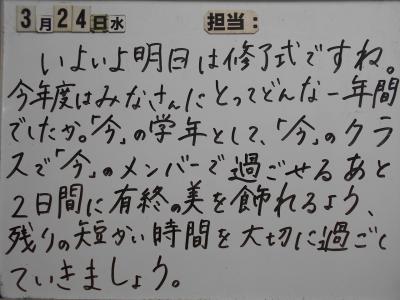 3月24日水 担当:
いよいよ明日は修了式ですね。
今年度はみなさんにとってどんな一年間
でしたか。「今」の学年として、「今」のクラ
スで「今」のメンバーで過ごせるあと
2日間に有終の美を飾れるよう、
残りの短かい時間を大切に過ごし
ていきましょう。